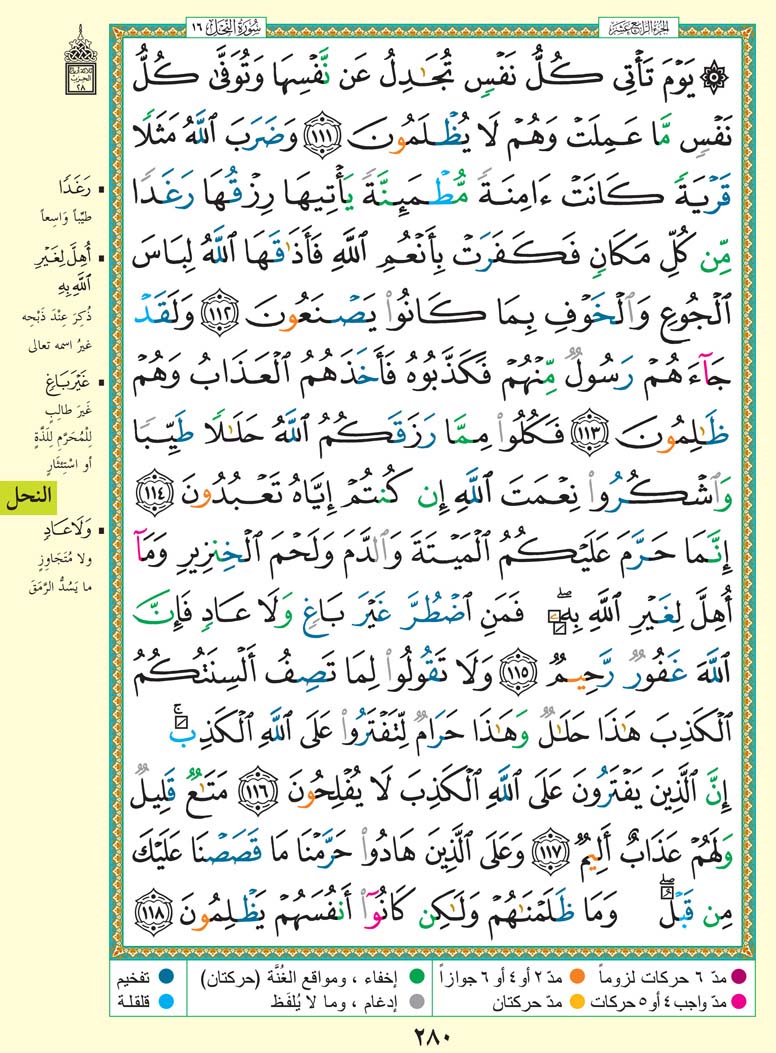 سُورَةُ النَّحْلِ ١٦
الجُزءُ الرَّابِعُ عَشَرَ
ثلاثة أرباع
الحزب
٢٨
۞ يَوْمَ تَأْتِى كُلُّ نَفْسٍ تُجَٰدِلُ عَن نَّفْسِهَا وَتُوَفَّىٰ كُلُّ
نَفْسٍ مَّا عَمِلَتْ وَهُمْ لَا يُظْلَمُونَ ١١١ وَضَرَبَ ٱللَّهُ مَثَلًا
قَرْيَةً كَانَتْ ءَامِنَةً مُّطْمَئِنَّةً يَأْتِيهَا رِزْقُهَا رَغَدًا
مِّن كُلِّ مَكَانٍ فَكَفَرَتْ بِأَنْعُمِ ٱللَّهِ فَأَذَٰقَهَا ٱللَّهُ لِبَاسَ
ٱلْجُوعِ وَٱلْخَوْفِ بِمَا كَانُوا۟ يَصْنَعُونَ ١١٢ وَلَقَدْ
جَآءَهُمْ رَسُولٌ مِّنْهُمْ فَكَذَّبُوهُ فَأَخَذَهُمُ ٱلْعَذَابُ وَهُمْ
ظَٰلِمُونَ ١١٣ فَكُلُوا۟ مِمَّا رَزَقَكُمُ ٱللَّهُ حَلَٰلًا طَيِّبًا
وَٱشْكُرُوا۟ نِعْمَتَ ٱللَّهِ إِن كُنتُمْ إِيَّاهُ تَعْبُدُونَ ١١٤
إِنَّمَا حَرَّمَ عَلَيْكُمُ ٱلْمَيْتَةَ وَٱلدَّمَ وَلَحْمَ ٱلْخِنزِيرِ وَمَآ
أُهِلَّ لِغَيْرِ ٱللَّهِ بِهِۦ ۖ فَمَنِ ٱضْطُرَّ غَيْرَ بَاغٍ وَلَا عَادٍ فَإِنَّ
ٱللَّهَ غَفُورٌ رَّحِيمٌ ١١٥ وَلَا تَقُولُوا۟ لِمَا تَصِفُ أَلْسِنَتُكُمُ
ٱلْكَذِبَ هَٰذَا حَلَٰلٌ وَهَٰذَا حَرَامٌ لِّتَفْتَرُوا۟ عَلَى ٱللَّهِ ٱلْكَذِبَ ۚ
إِنَّ ٱلَّذِينَ يَفْتَرُونَ عَلَى ٱللَّهِ ٱلْكَذِبَ لَا يُفْلِحُونَ ١١٦ مَتَٰعٌ قَلِيلٌ
وَلَهُمْ عَذَابٌ أَلِيمٌ ١١٧ وَعَلَى ٱلَّذِينَ هَادُوا۟ حَرَّمْنَا مَا قَصَصْنَا عَلَيْكَ
مِن قَبْلُ ۖ وَمَا ظَلَمْنَٰهُمْ وَلَٰكِن كَانُوٓا۟ أَنفُسَهُمْ يَظْلِمُونَ ١١٨
رَغَدًا
طيّباً وَاسِعاً
أُهِلَّ لِغَيْرِ
اللَّهِ بِهِ
ذُكِرَ عِنْدَ ذَبْحِه
غيرُ اسمه تعالى
غَيْرَ بَاغٍ
غَيرَ طالِبٍ
لِلْمُحَرَّمِ لِلَذَّةٍ
أو اسْتِئثَارٍ
النحل
وَلَا عَادٍ
ولا مُتَجَاوِزٍ
ما يَسُدُّ الرَّمَقَ
مدّ ٦ حركات لزوماً
مدّ ٢ أو ٤ أو ٦ جوازاً
إخفاء ، ومواقع الغُنَّة (حركتان)
تفخيم
مدّ واجب ٤ أو ٥ حركات
مدّ حركتان
إدغام ، وما لا يُلفَظ
قلقلة
٢٨٠